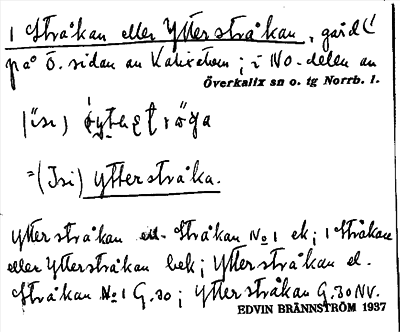 1 Stråkan eller Ytterstråkan, gård (
på ö. sidan av Kalixälven; i NO-delen av
Överkalix sn o. tg Norrb. l.
(isi)
=(Isi) ytterstråka.
Ytterstråkan el. Stråkan No 1 ek; 1 Stråkan
eller Ytterstråkan bek; Ytterstråkan el.
Stråkan No 1 G.30; Ytterstråkan G.30 NV.
EDVIN BRÄNNSTRÖM 1937